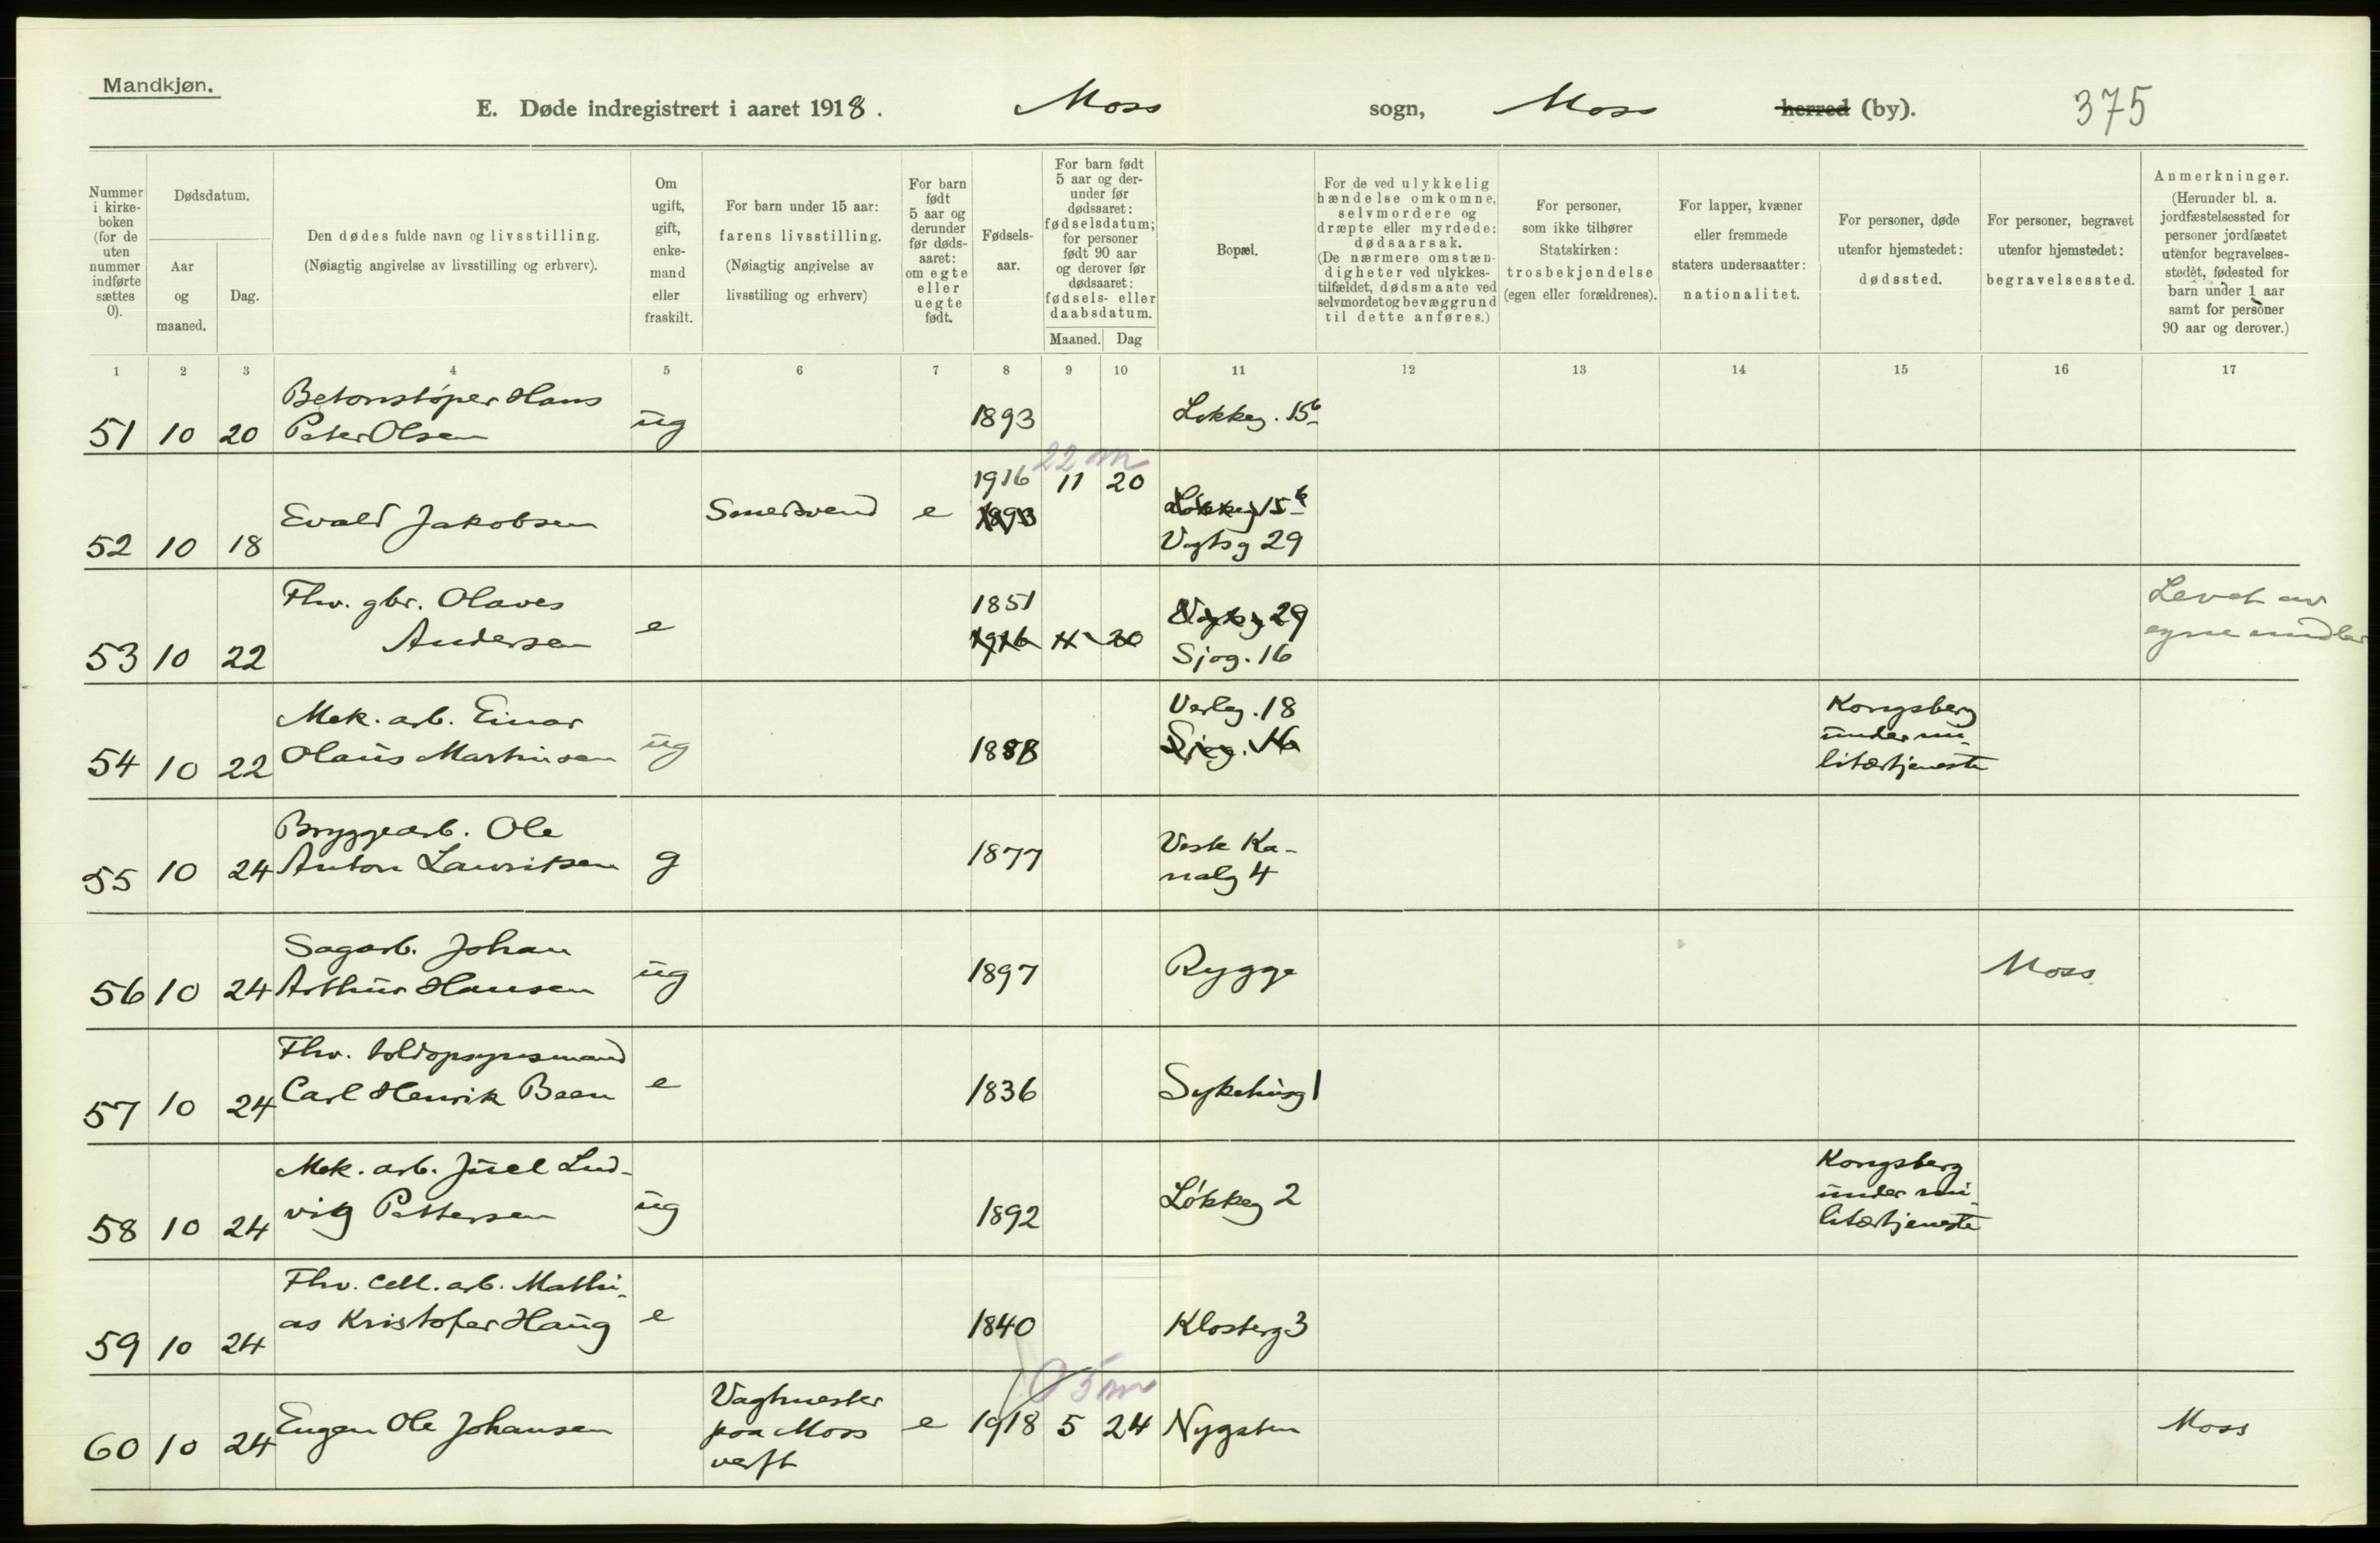 Mandkjøn.
E. Døde indregistrert i aaret 1918. Moss sogn, Moss herred (by). 375
Nummer i kirke-boken (for de uten nummer indførte sættes 0).
Dødsdatum.
Aar og maaned.
Dag.
Den dødes fulde navn og livsstilling.
(Nøiagtig angivelse av livsstilling og erhverv).
Om ugift, gift, enke-mand eller fraskilt.
For barn under 15 aar: farens livsstilling.
(Nøiagtig angivelse av livsstiling og erhverv)
For barn født 5 aar og derunder før døds-aaret: om egte eller uegte født.
Fødsels-aar.
For barn født 5 aar og der-under før dødsaaret: fødselsdatum; for personer født 90 aar og derover før dødsaaret: fødsels- eller daabsdatum.
Maaned. Dag
Bopæl.
For de ved ulykkelig hændelse omkomne, selvmordere og dræpte eller myrdede: dødsaarsak.
(De nærmere omstæn-digheter ved ulykkes-tilfældet, dødsmaate ved selvmordet og bevæggrund til dette anføres.)
For personer, som ikke tilhører Statskirken: trosbekjendelse (egen eller forældrenes).
For lapper, kvæner eller fremmede staters undersaatter: nationalitet.
For personer, døde utenfor hjemstedet: dødssted.
For personer, begravet utenfor hjemstedet: begravelsessted.
Anmerkninger.
(Herunder bl. a. jordfæstelsessted for personer jordfæstet utenfor begravelses-stedet, fødested for barn under 1 aar samt for personer 90 aar og derover.)
1 2 3 4 5 6 7 8 9 10 11 12 13 14 15 16 17
Betonstøper Hans
51 10 20 Peter Olsen ug 1893 Løkkeg. 15b
22 m
1916 11 20
52 10 18 Evald Jakobsen Smedsvend e 1893 Løkkeg 15b
Vogtsg 29
Fhv. gbr. Olaves 1851 Vogtsg 29 Levet av
53 10 22 Andersen e 1916 11 20 Sjøg. 16 egne midler
Mek. arb. Einar Verleg. 18 Kongsberg
54 10 22 Olaus Martinsen ug 1888 Sjøg. 16 under mi-
litærtjeneste
Bryggearb. Ole Vestre Ka-
55 10 24 Anton Lauritsen g 1877 nalg 4
Sagarb. Johan
56 10 24 Arthur Hansen ug 1897 Rygge Moss
Fhv. toldopsynsmand
57 10 24 Carl Henrik Been e 1836 Sykehusg 1
Mek. arb. Juel Lud- Kongsberg
58 10 24 vig Pettersen ug 1892 Løkkeg 2 under mi-
litærtjeneste
Fhv. cell. arb. Mathi-
59 10 24 as Kristofer Haug e 1840 Klosterg 3
0 5 m
Vagtmester
60 10 24 Eugen Ole Johansen paa Moss e 1918 5 24 Nygaten Moss
verft